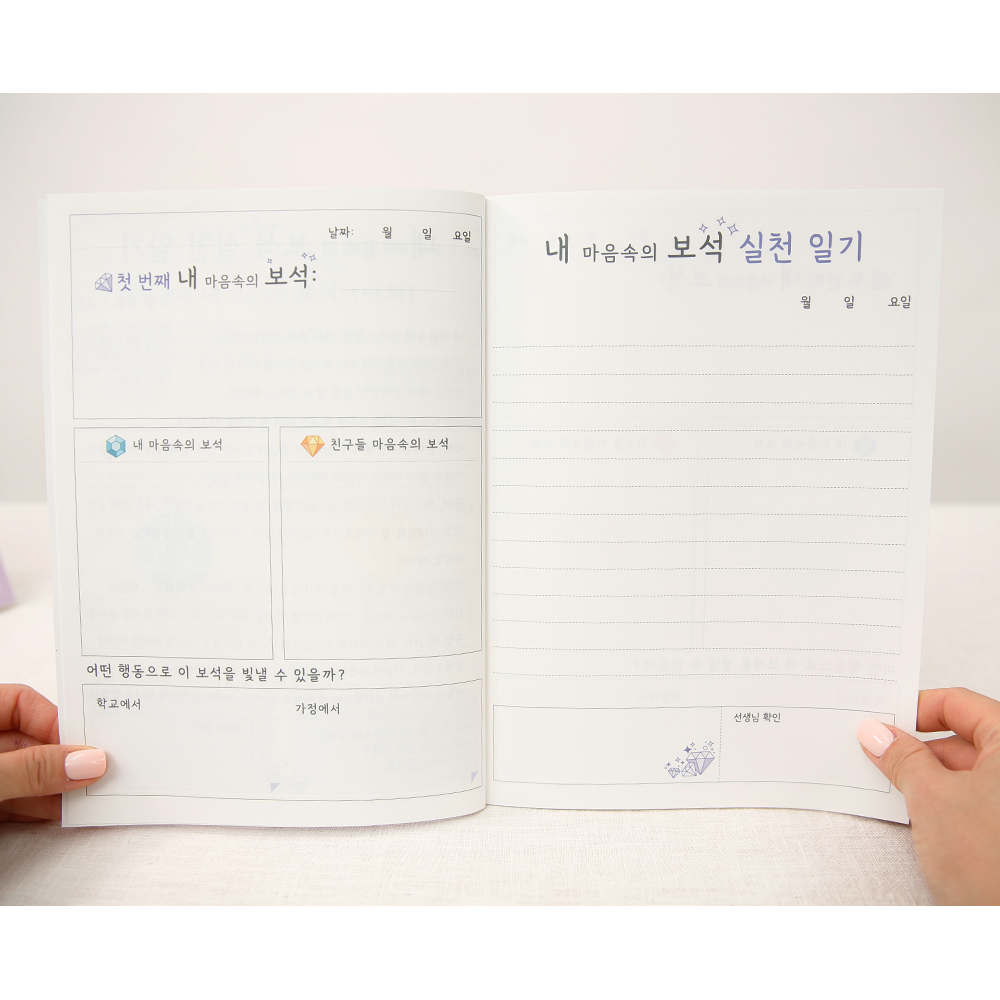 날짜: 월 일 요일
첫 번째 내 마음속의 보석:
내 마음속의 보석
친구들 마음속의 보석
어떤 행동으로 이 보석을 빛낼 수 있을까?
학교에서
가정에서
내 마음속의 보석 실천 일기
월 일 요일
선생님 확인